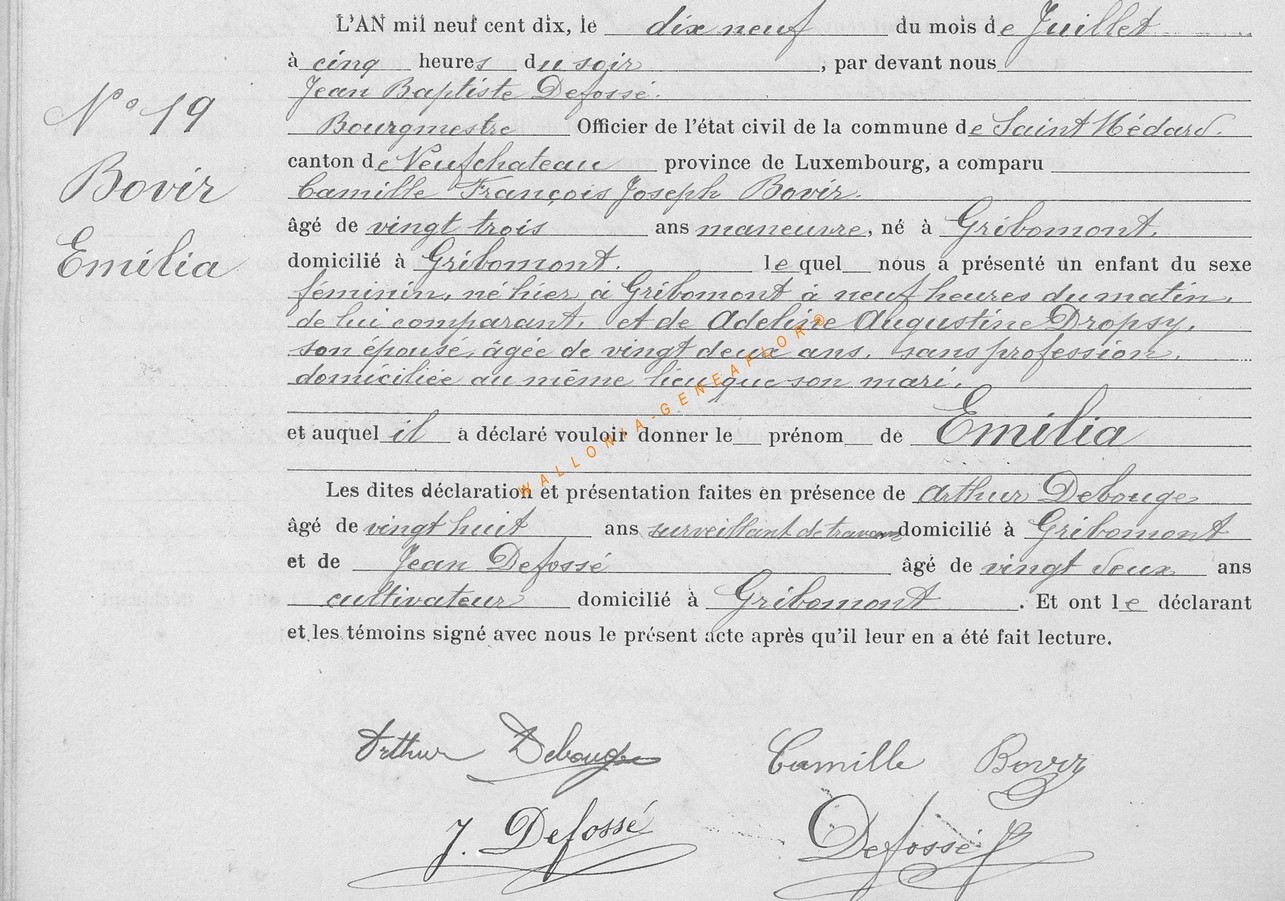 L'AN mil neuf cent dix, le dix neuf du mois de Juillet
à cinq heures du soir, par devant nous
Jean Baptiste Defossé.
Bourgmestre Officier de l'état civil de la commune de Saint Médard.
canton de Neufchateau province de Luxembourg, a comparu
Camille François Joseph Bovir.
âgé de vingt trois ans maneuvre, né à Gribomont.
domicilié à Gribomont. lequel nous a présenté un enfant du sexe
féminin, né hier à Gribomont à neuf heures du matin,
de lui comparant, et de Adeline Augustine Dropsy,
son épouse, âgée de vingt deux ans, sans profession,
domiciliée au même lieu que son mari,
et auquel il a déclaré vouloir donner le prénom de Emilia
Les dites déclaration et présentation faites en présence de Arthur Debouge
âgé de vingt huit ans surveillant de travaux domicilié à Gribomont
et de Jean Defossé âgé de vingt deux ans
cultivateur domicilié à Gribomont. Et ont le déclarant
et les témoins signé avec nous le présent acte après qu'il leur en a été fait lecture.
N° 19
Bovir
Emilia
WALLONIA-GENEAFLOR©
Arthur Debouge Camille Bovir
J. Defossé Defossé JB